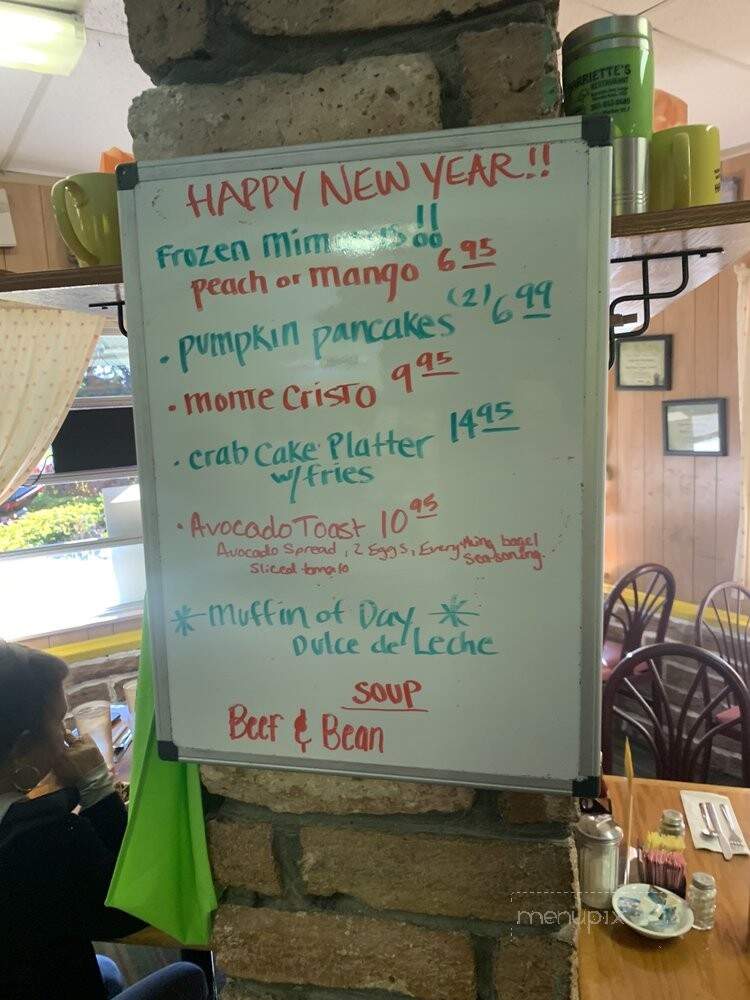 HAPPY NEW YEAR!!
Frozen !!
peach or mango 6 95
• pumpkin pancakes (2) 6 99
• monte Cristo 9 95
• crab Cake Platter 14 95
w/fries
• Avocado Toast 10 95
Avocado Spread, 2 Eggs, Everything bagel
Sliced tomato seasoning
* Muffin of Day *
Dulce de Leche
soup
Beef & Bean
RESTAURANT
menupix